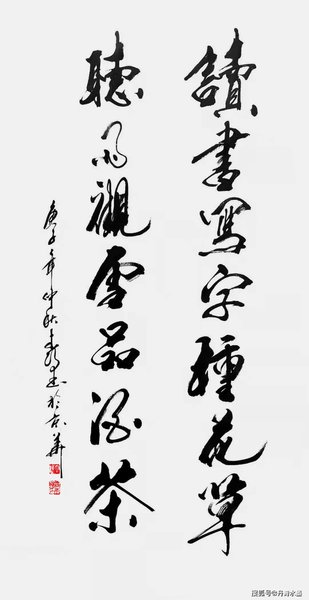 讀書寫字種花草
聽雨觀雲品酒茶
庚子年仲秋於京華
搜狐号@丹